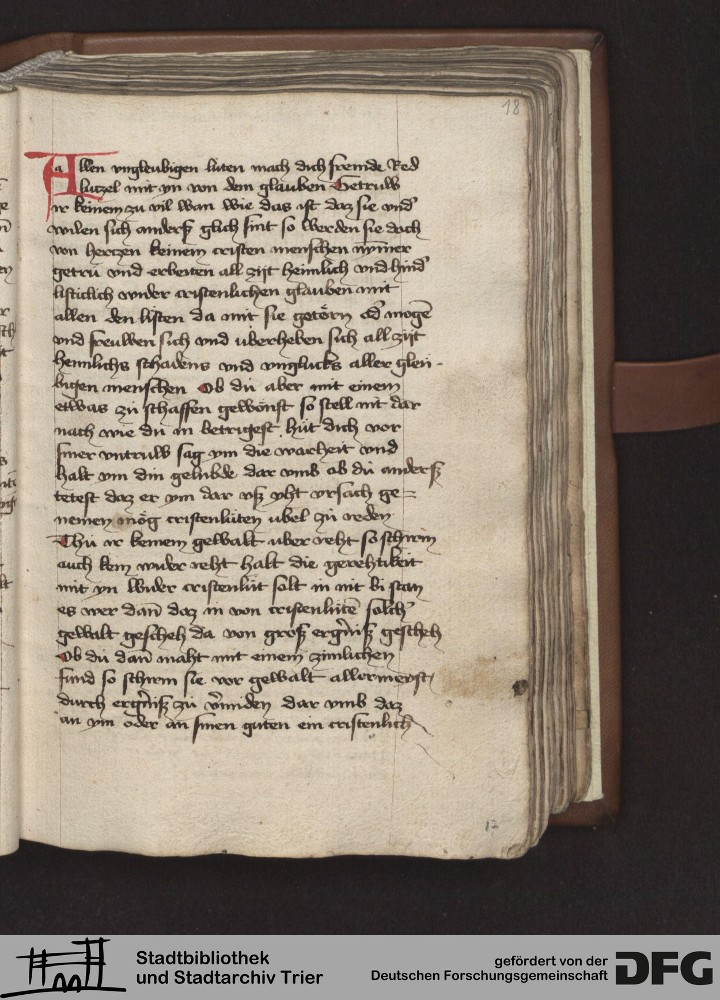 18
Allen vngleubigen luten mach dich fremde Red
lutzel mit yn von dem glauben Getruw
ir keinem zu vil wan wie das ist daz sie vnd'
wilen sich anderß glich sint so werden sie doch
von hertzen keinem cristen menschen nymer
getru vnd erbeiten all zijt heimlich vnd hind'
listiclich wider cristenlichen glauben mit
allen den listen da mit sie getörn od' mogē
vnd freuwen sich vnd uberheben sich all zijt
heimlichs schadens vnd vnglucks aller gleu-
bigen menschen Ob du aber mit einem
etwas zü schaffen gewönst so stell nit dar
nach wie du in betrigest hüt dich vor
siner vntruw sag ym die warheit vnd
halt ym din gelubde dar vmb ob du anderß
tetest daz er ym dar vß yht vrsach ge=
nemen mög cristenlüten ubel zü reden
Thü ir keinem gewalt uber reht so schirm
auch kein wider reht halt die gerehtikeit
mit yn wider cristenlüt solt in nit bi stan
es wer dañ daz in von cristenlütē solch'
gewalt gescheh da von groß erg'niß gescheh
Ob du dañ maht mit einem zimlichen
fund so schirm sie vor gewalt allermeist
durch erg'niß zü v'miden dar vmb daz
an ym oder an sinen guten ein cristenlich
12
Stadtbibliothek
und Stadtarchiv Trier
gefördert von der
Deutschen Forschungsgemeinschaft
DFG